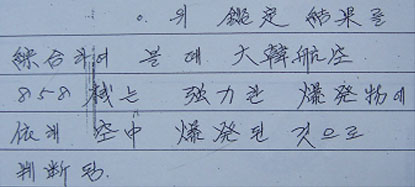 ○. 위 鑑定 結果를
綜合하여 볼때 大韓航空
858 機는 强力한 爆發物에
依해 空中 爆發된 것으로
判斷됨.